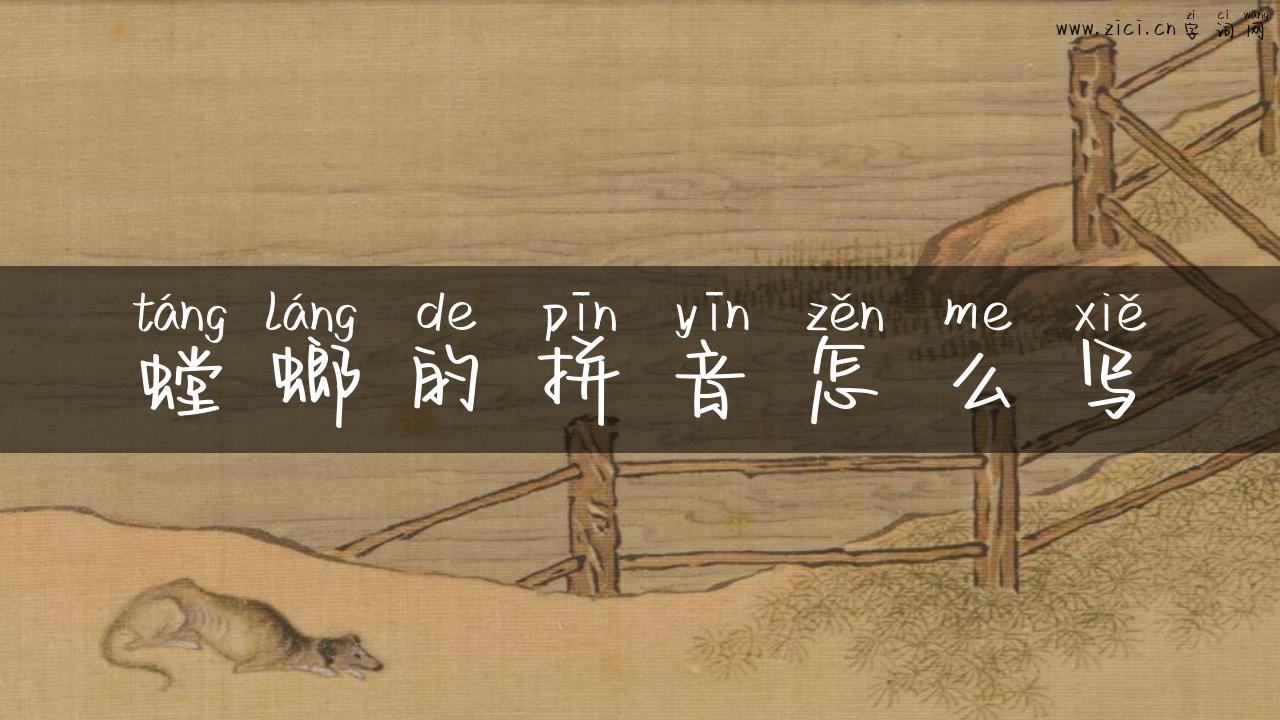 zi ci wang
www.zici.cn 字词网
táng láng de pīn yīn zěn me xiě
螳螂的拼音怎么写